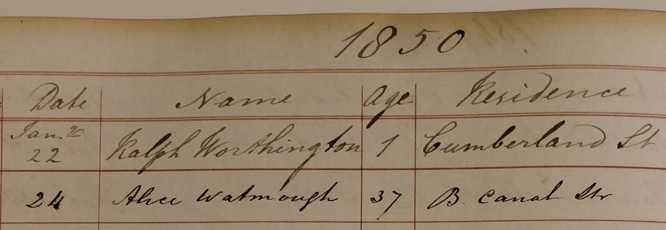 1850
Date Name Age Residence
Janry
22 Ralph Worthington 1 Cumberland St
24 Alice Watmough 37 B. Canal Str